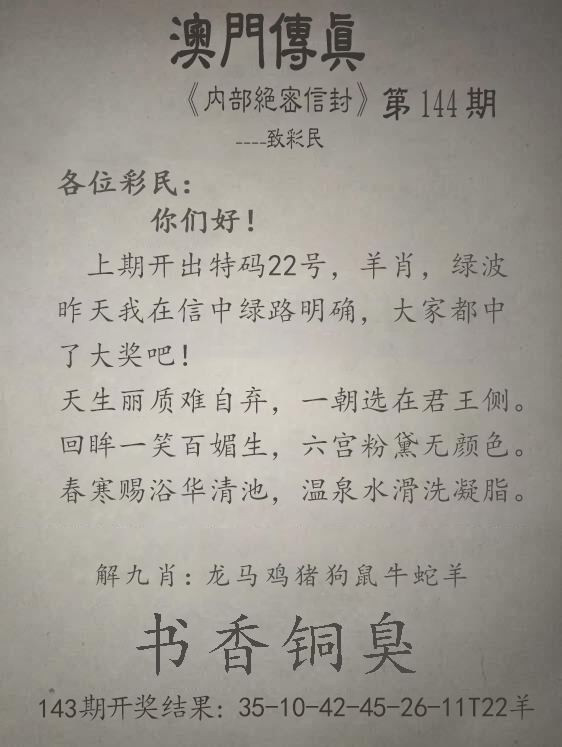 澳門傳眞
《内部絕密信封》第144期
----致彩民
各位彩民：
你们好！
上期开出特码22号，羊肖，绿波
昨天我在信中绿路明确，大家都中
了大奖吧！
天生丽质难自弃，一朝选在君王侧。
回眸一笑百媚生，六宫粉黛无颜色。
春寒赐浴华清池，温泉水滑洗凝脂。
解九肖：龙马鸡猪狗鼠牛蛇羊
书香铜臭
143期开奖结果：35-10-42-45-26-11T22羊